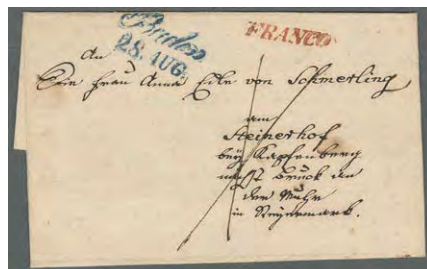 Baden
28. AUG.
FRANCO
An
Frau Anna Edle von Schmerling
am
Steinerhof
bey Kapfenberg
nächst Bruck an
der Muhr
in Steyermark.